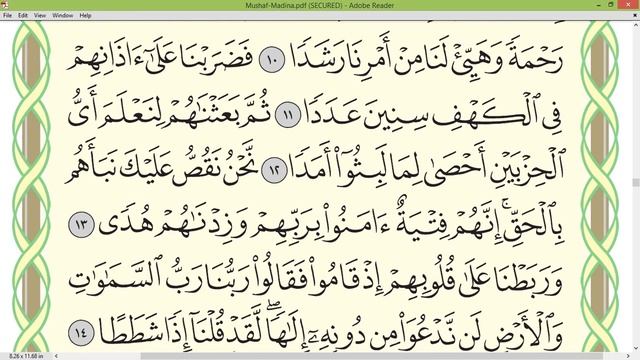 Mushaf-Madina.pdf (SECURED) - Adobe Reader
File Edit View Window Help
رَحْمَةً وَهَيِّئْ لَنَا مِنْ أَمْرِنَا رَشَدًا ١٠ فَضَرَبْنَا عَلَىٰٓ ءَاذَانِهِمْ
فِي ٱلْكَهْفِ سِنِينَ عَدَدًا ١١ ثُمَّ بَعَثْنَٰهُمْ لِنَعْلَمَ أَيُّ
ٱلْحِزْبَيْنِ أَحْصَىٰ لِمَا لَبِثُوٓا۟ أَمَدًا ١٢ نَّحْنُ نَقُصُّ عَلَيْكَ نَبَأَهُم
بِٱلْحَقِّ ۚ إِنَّهُمْ فِتْيَةٌ ءَامَنُوا۟ بِرَبِّهِمْ وَزِدْنَٰهُمْ هُدًى ١٣
وَرَبَطْنَا عَلَىٰ قُلُوبِهِمْ إِذْ قَامُوا۟ فَقَالُوا۟ رَبُّنَا رَبُّ ٱلسَّمَٰوَٰتِ
وَٱلْأَرْضِ لَن نَّدْعُوَا۟ مِن دُونِهِۦٓ إِلَٰهًا ۖ لَّقَدْ قُلْنَآ إِذًا شَطَطًا ١٤
8.26 x 11.68 in